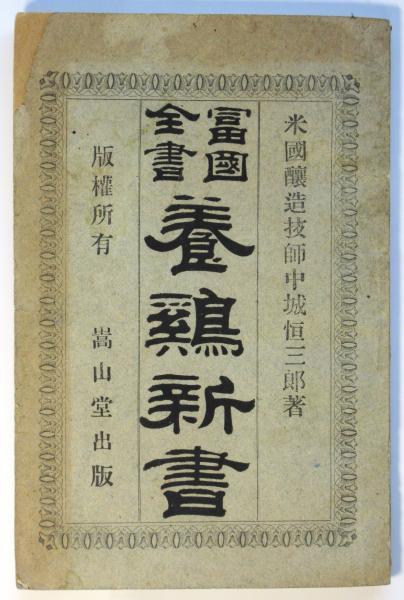 米國釀造技師中城恒三郎著
富國全書
養鷄新書
版權所有　嵩山堂出版